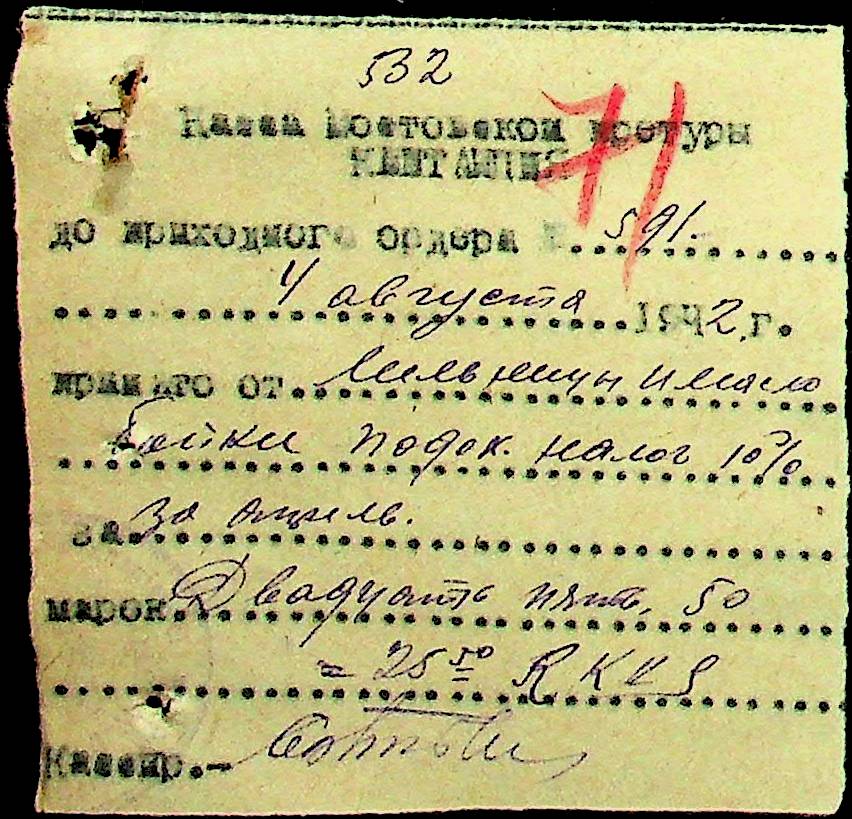 532
71
Касса Мостовской претуры
КВИТАНЦИЯ
до приходного ордера №. 591.
4 августа 1942 г.
принято от Мельницы и масло
бойки подох. налог 10%
за за апрель.
марок. Двадцать пять, 50
= 25 50 RKKS
Кассир.-